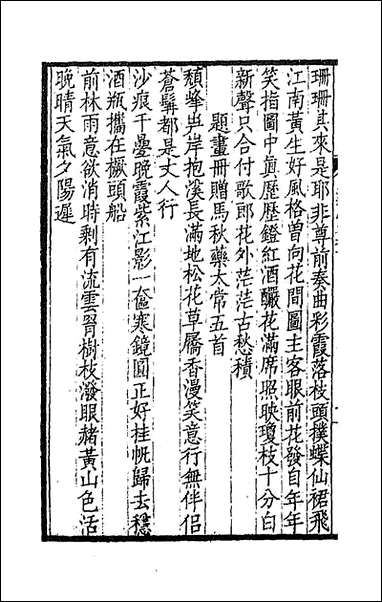 珊珊其來是耶非尊前奏曲彩霞落枝頭撲蝶仙裙飛
江南黃生好風格曾向花間圖主客眼前花發自年年
笑指圖中眞歷歷鐙紅酒釅花滿席照映瓊枝十分白
新聲只合付歌郎花外茫茫古愁積
題畫冊贈馬秋藥太常五首
頹峰岸溪長滿地松花草屩香漫笑意行無伴侶
蒼髯都是丈人行
沙痕千疊晚霞紫江影一奩寒鏡圓正好挂帆歸去穩
酒瓶攜在橛頭船
前林雨意欲消時剩有流雲冐樹枝潑眼赭黃山色活
晚晴天氣夕陽遲